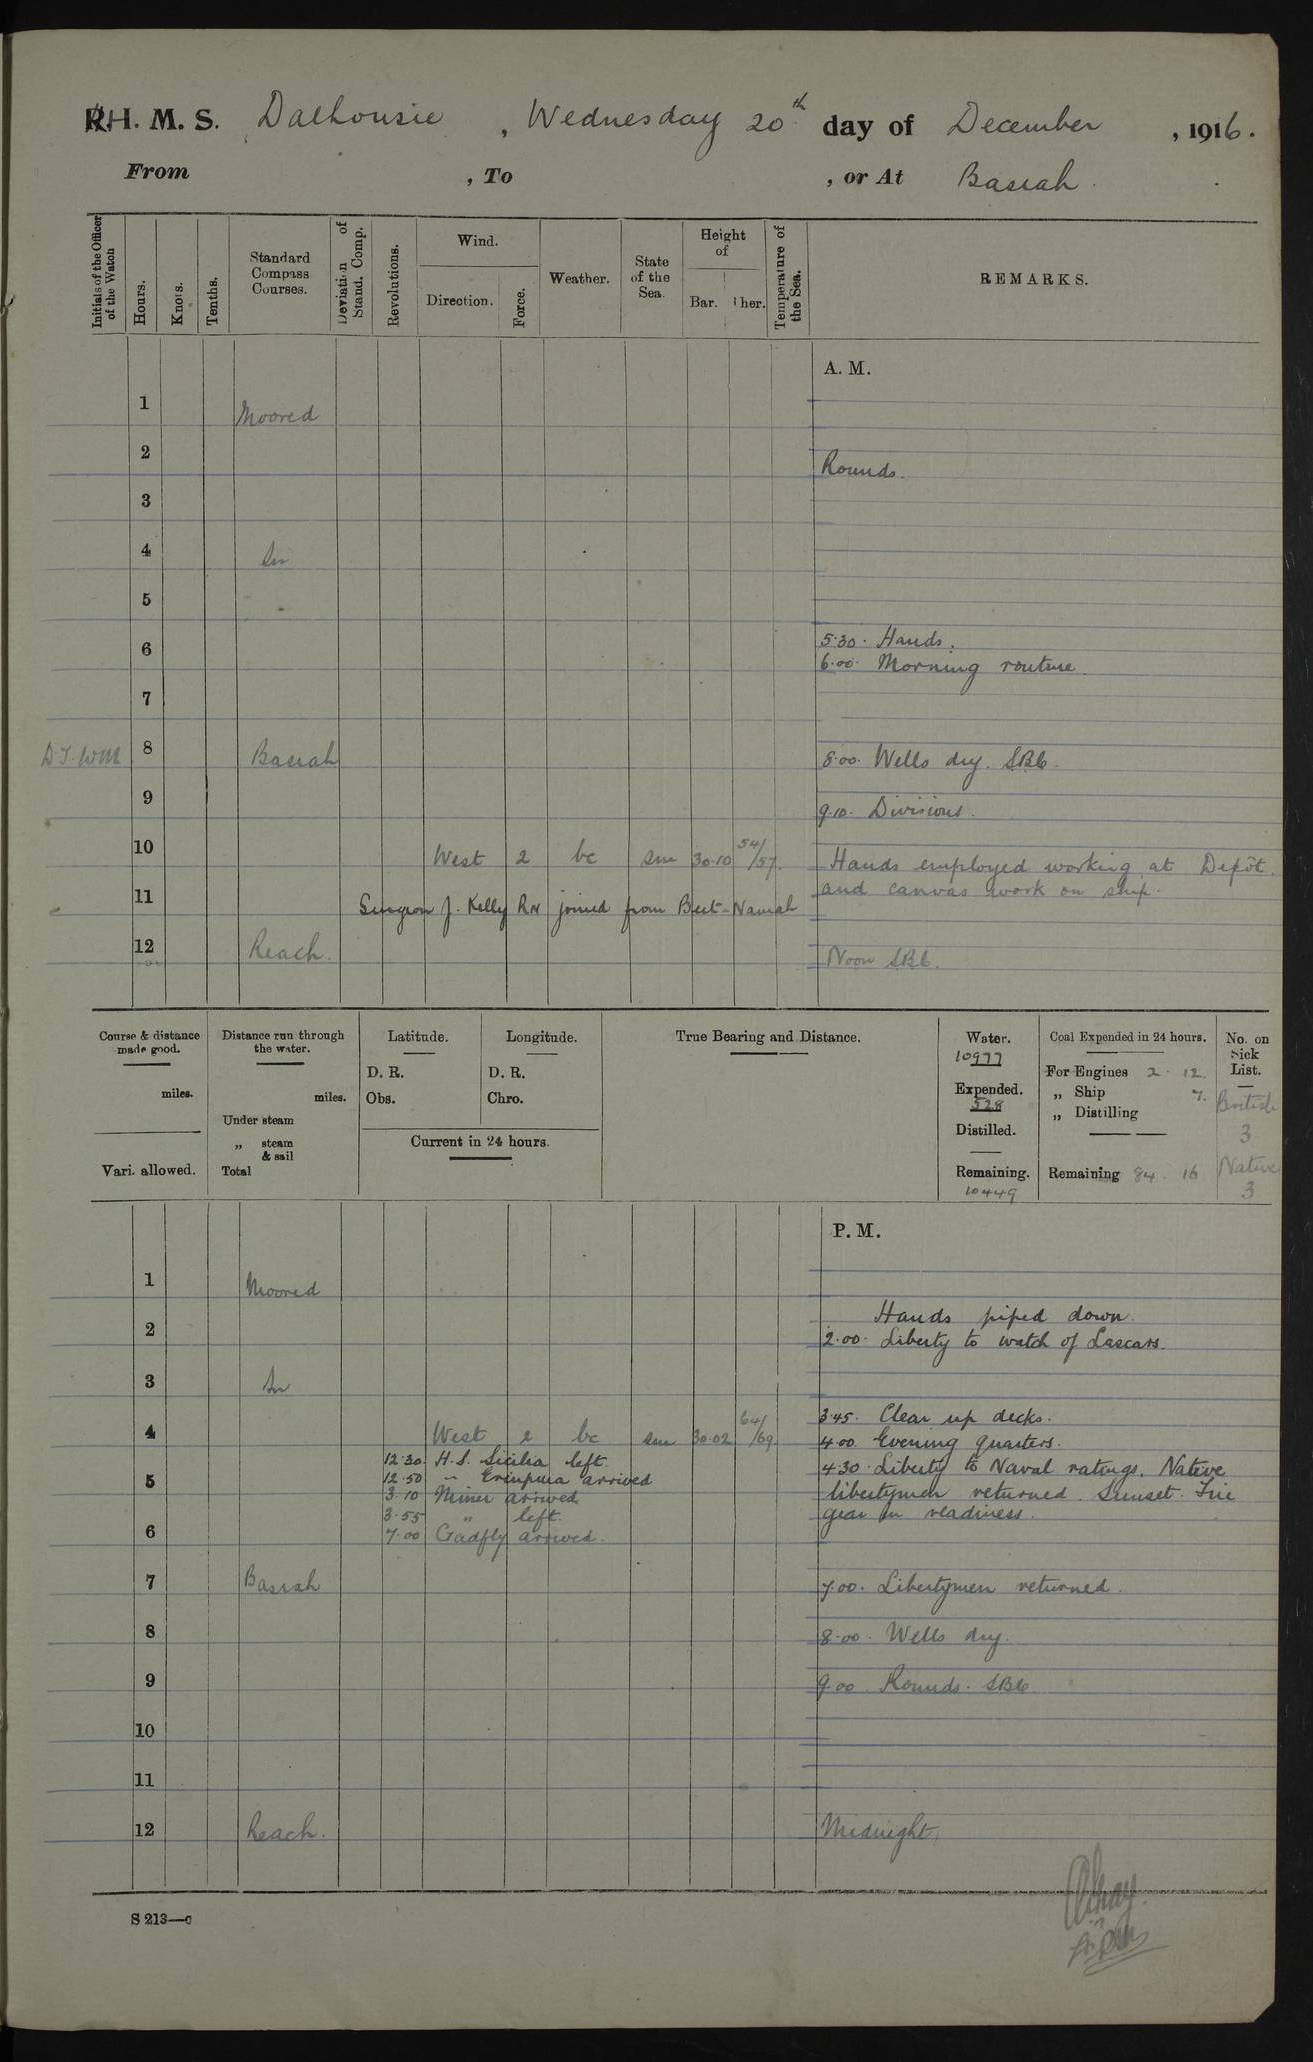 H. M. S. Dalhousie, Wednesday 20th day of December, 1916.
From , To , or At Basrah.
Initials of the Officer of the Watch
Hours.
Knots.
Tenths.
Standard Compass Courses.
Deviation of Stand. Comp.
Revolutions.
Wind.
Direction.
Force.
Weather.
State of the Sea.
Height of
Bar.
Ther.
Temperature of the Sea.
REMARKS.
A. M.
1 Moored
2 Rounds.
3
4 In
5
5.30. Hands.
6 6.00. Morning routine.
7
8 Basrah 8.00. Wells dry. SBC.
9 9.10. Divisions.
10 West 2 bc sm 30.10 54/57. Hands employed working at Depôt.
and canvas work on ship.
11 Surgeon J. Kelly RN joined from Beit-Namah
12 Reach. Noon SBC.
Course & distance made good.
miles.
Vari. allowed.
Distance run through the water.
miles.
Under steam
„ steam & sail
Total
Latitude.
D. R.
Obs.
Longitude.
D. R.
Chro.
Current in 24 hours.
True Bearing and Distance.
Water.
10977
Expended.
528
Distilled.
Remaining.
10449
Coal Expended in 24 hours.
For Engines 2. 12.
„ Ship 7.
„ Distilling
Remaining 84. 16
No. on Sick List.
British
3
Native
3
P. M.
1 Moored
Hands piped down.
2 2.00. Liberty to watch of Lascars.
3 In
3.45. Clear up decks.
4 West 2 bc sm 30.02 64/69. 4.00. Evening quarters.
12.30. H.S. Sicilia left.
4.30. Liberty to Naval ratings. Native
12.50 " Erinpura arrived
5
3.10 Miner arrived
libertymen returned. Sunset. Fire
3.55 " left.
gear in readiness.
6 7.00 Gadfly arrived.
7 Basrah 7.00. Libertymen returned.
8 8.00. Wells dry.
9 9.00. Rounds. SBC
10
11
12 Reach. Midnight.
S 213—c